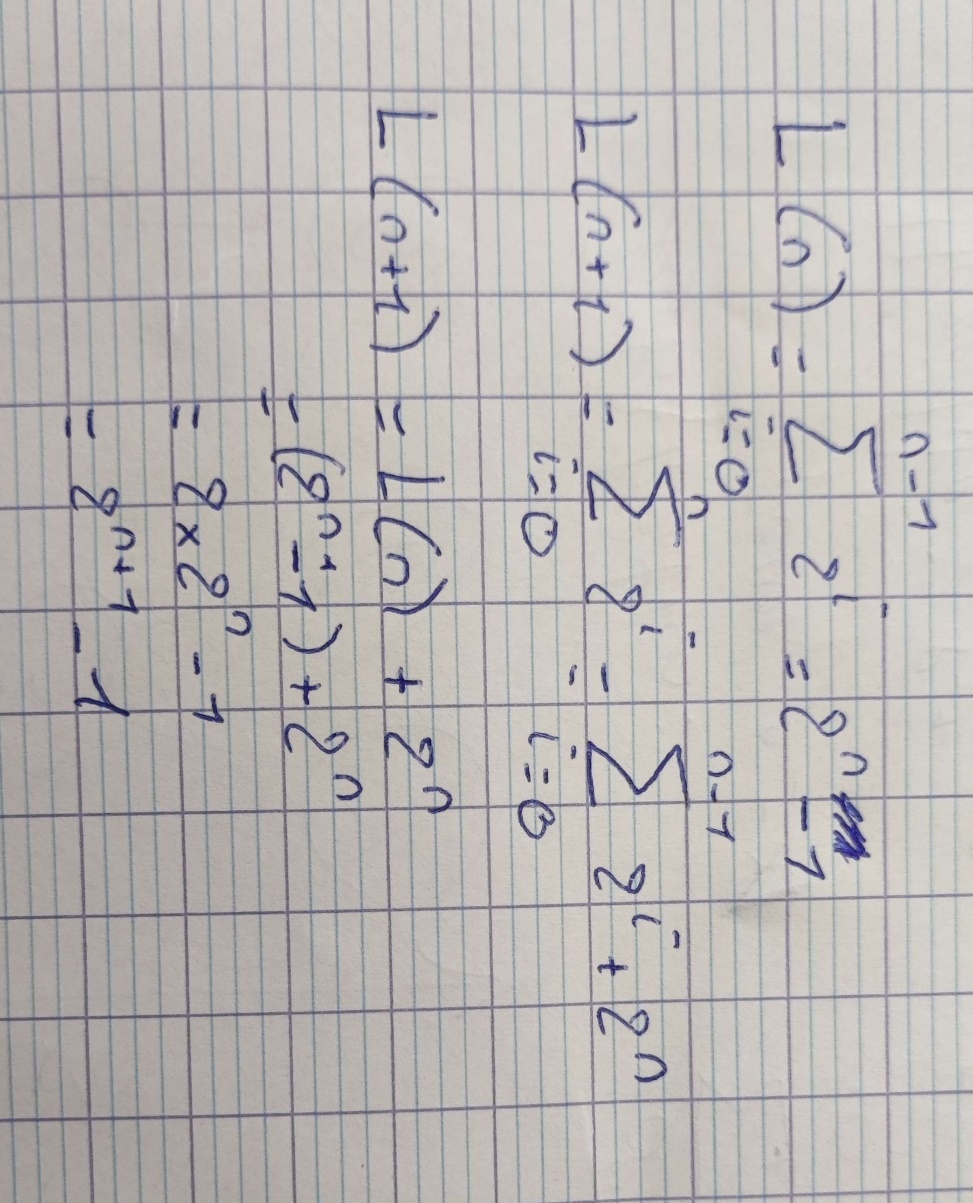 L(n) = ∑_{i=0}^{n-1} 2^i = 2^n - 1
L(n+1) = ∑_{i=0}^{n} 2^i = ∑_{i=0}^{n-1} 2^i + 2^n
L(n+1) = L(n) + 2^n
= (2^n - 1) + 2^n
= 2 × 2^n - 1
= 2^{n+1} - 1